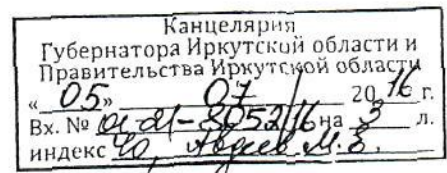 Канцелярия
Губернатора Иркутской области и
Правительства Иркутской области
« 05 » 07 2016 г.
Вх. № 01-21-8052/16 на 3 л.
индекс Авдеев М.Е.